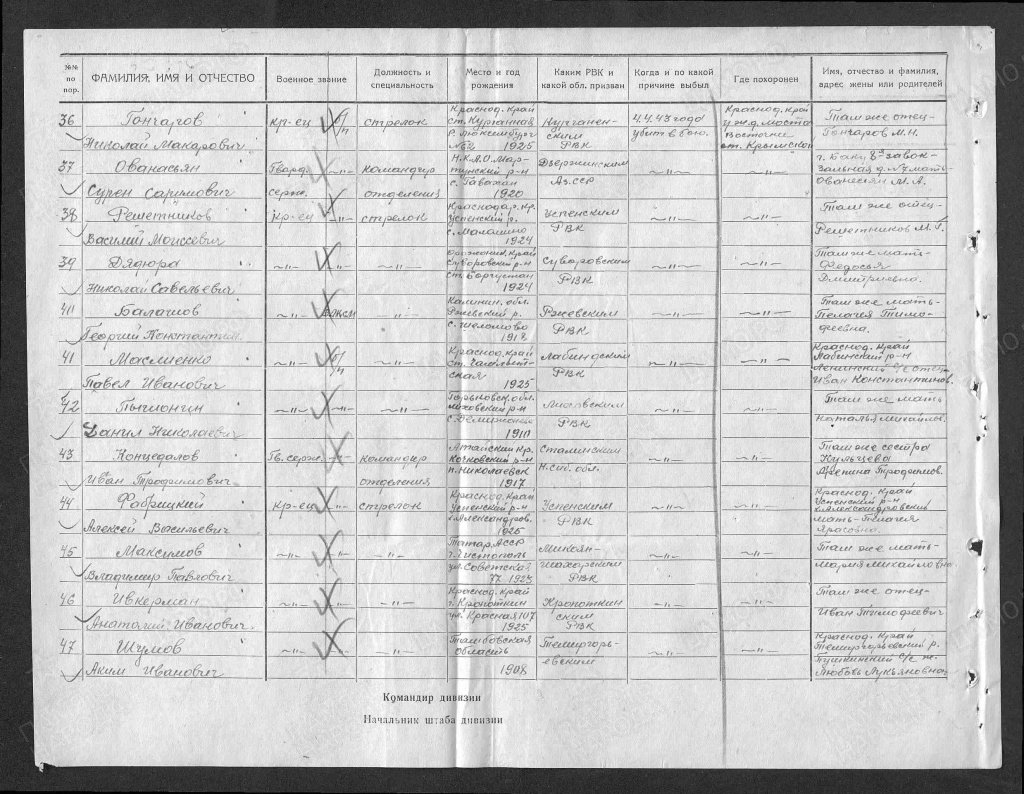 №№ по пор. ФАМИЛИЯ, ИМЯ И ОТЧЕСТВО Военное звание Должность и специальность Место и год рождения Каким РВК и какой обл. призван Когда и по какой причине выбыл Где похоронен Имя, отчество и фамилия, адрес жены или родителей
36 Гончаров Николай Макарович кр-ец стрелок Краснод. край ст. Курганная 1925 Курганен-ским РВК 4.4.43 года убит в бою. Краснод. край у ж.д. моста восточнее ст. Крымской Там же отец- Гончаров М.Н.
37 Ованасьян Сурен Гвард. серж. командир отделения Н.К.А.О. Мар-тунский р-н с. 1920 Дзержинским Аз.сср —"— —"— г. Баку вокзальная д. №7 мать- Ованасьян М.А.
38 Решетников Василий Моиссевич кр-ец стрелок Краснодар. кр. Успенский р. с. Маламино 1924 Успенским РВК —"— —"— Там же отец- Решетников М.Г.
39 Дядюра Николай Савельевич —"— —"— —"— Орджоник. край Суворовский р-н ст. Боргустан 1924 Суворовским РВК —"— —"— Там же мать- Федосья Дмитриевна.
40 Балашов Георгий Константин. —"— —"— Калинин. обл. Ржевский р. 1918 Ржевским РВК —"— —"— Там же мать- Пелагея Тимо-феевна.
41 Масленко Павел Иванович —"— б/п —"— Краснод. край 1925 Лабиндским РВК —"— —"— Краснод. край Лабинский р-н Ленинский с/с отец- Иван Константинов.
42 Данил Николаевич —"— —"— —"— Горьковск. обл. 1910 РВК —"— —"— Там же мать Наталья Михайлов.
43 Концедалов Иван Трофимович Гв. серж. —"— командир отделения Алтайский кр. Кочковский р-н п. Николаевск 1917 Сталинским Н.сиб. обл. —"— —"— Там же сестра Кульчева Трофимов.
44 Фабрицкий Алексей Васильевич кр-ец стрелок Краснод. край Успенский р-н х. Александров. 1925 Успенским РВК —"— —"— Краснод. край Успенский р-н х. Александровский мать-Пелагея
45 Максимов Владимир Павлович —"— —"— —"— Татар. Асср г. Чистополь ул. Советская 77 1923 Микоян-шахарским РВК —"— —"— Там же мать- Мария Михайловна.
46 Ивкерман Анатолий Иванович. —"— —"— —"— Краснод. край г. Кропоткин ул. Красная 107 1925 Кропоткин ским РВК —"— —"— Там же отец- Иван Тимофеевич
47 Шумов Аким Иванович —"— —"— —"— Тамбовская область 1908 Темиргоев-евским —"— —"— Краснод. край Темиргоевский р. Пушкинский с/с ж. Любовь Лукьяновна
Командир дивизии
Начальник штаба дивизии